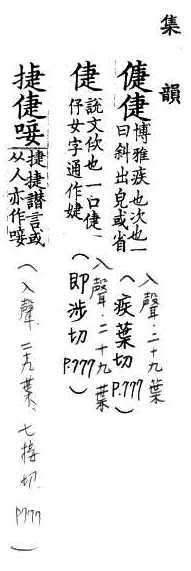 集韻
倢倢博雅疾也次也一
曰斜出皃或省
(入聲.二十九葉
疾葉切 P.777)
倢說文佽也一曰倢
伃女字通作婕
(入聲.二十九葉
即涉切 P.777)
捷倢唼捷捷譖言或
从人亦作唼
(入聲.二十九葉、七接切 P.777)